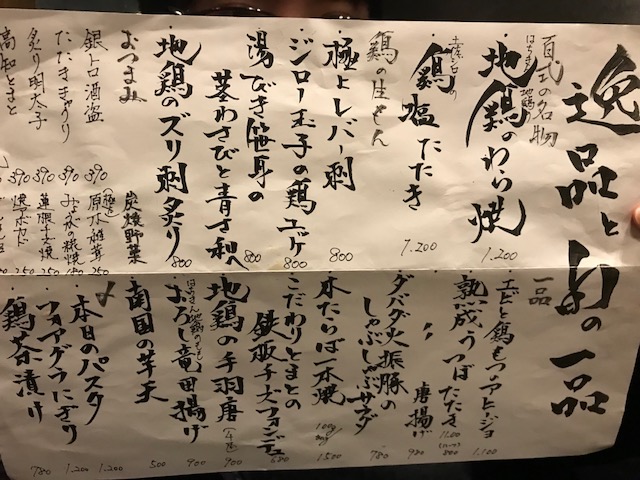 逸品と旬の一品
百式の名物
はちきん地鶏
・地鶏のわら焼
1.200
土佐
鶏塩たたき
1.200
鶏の生もん
・極上レバー刺
800
・ジロー玉子の鶏ユッケ
800
・湯びき笹身の
茎わさびと青さ和え
800
・地鶏のズリ刺炙り
800
おつまみ
銀トロ酒盗
390
たたききゅうり
390
炙り明太子
390
高知とまと
390
炭焼野菜
原木椎茸
250
みそ炊
150
焼アボカド
350
一品
・エビと鶏もつアヒージョ
1.100
・熟成うつぼ
たたき
唐揚げ
980
・ダバダ火振豚の
しゃぶしゃぶサラダ
780
・本たらば一本焼
1500
・こだわりとまとの
鉄板チーズフォンデュ
680
・地鶏の手羽唐
900
はちきん地鶏のもも
おろし竜田揚げ
900
・南国の芋天
500
〆
・本日のパスタ
1.200
・フォアグラにぎり
1.200
・鶏茶漬け
780